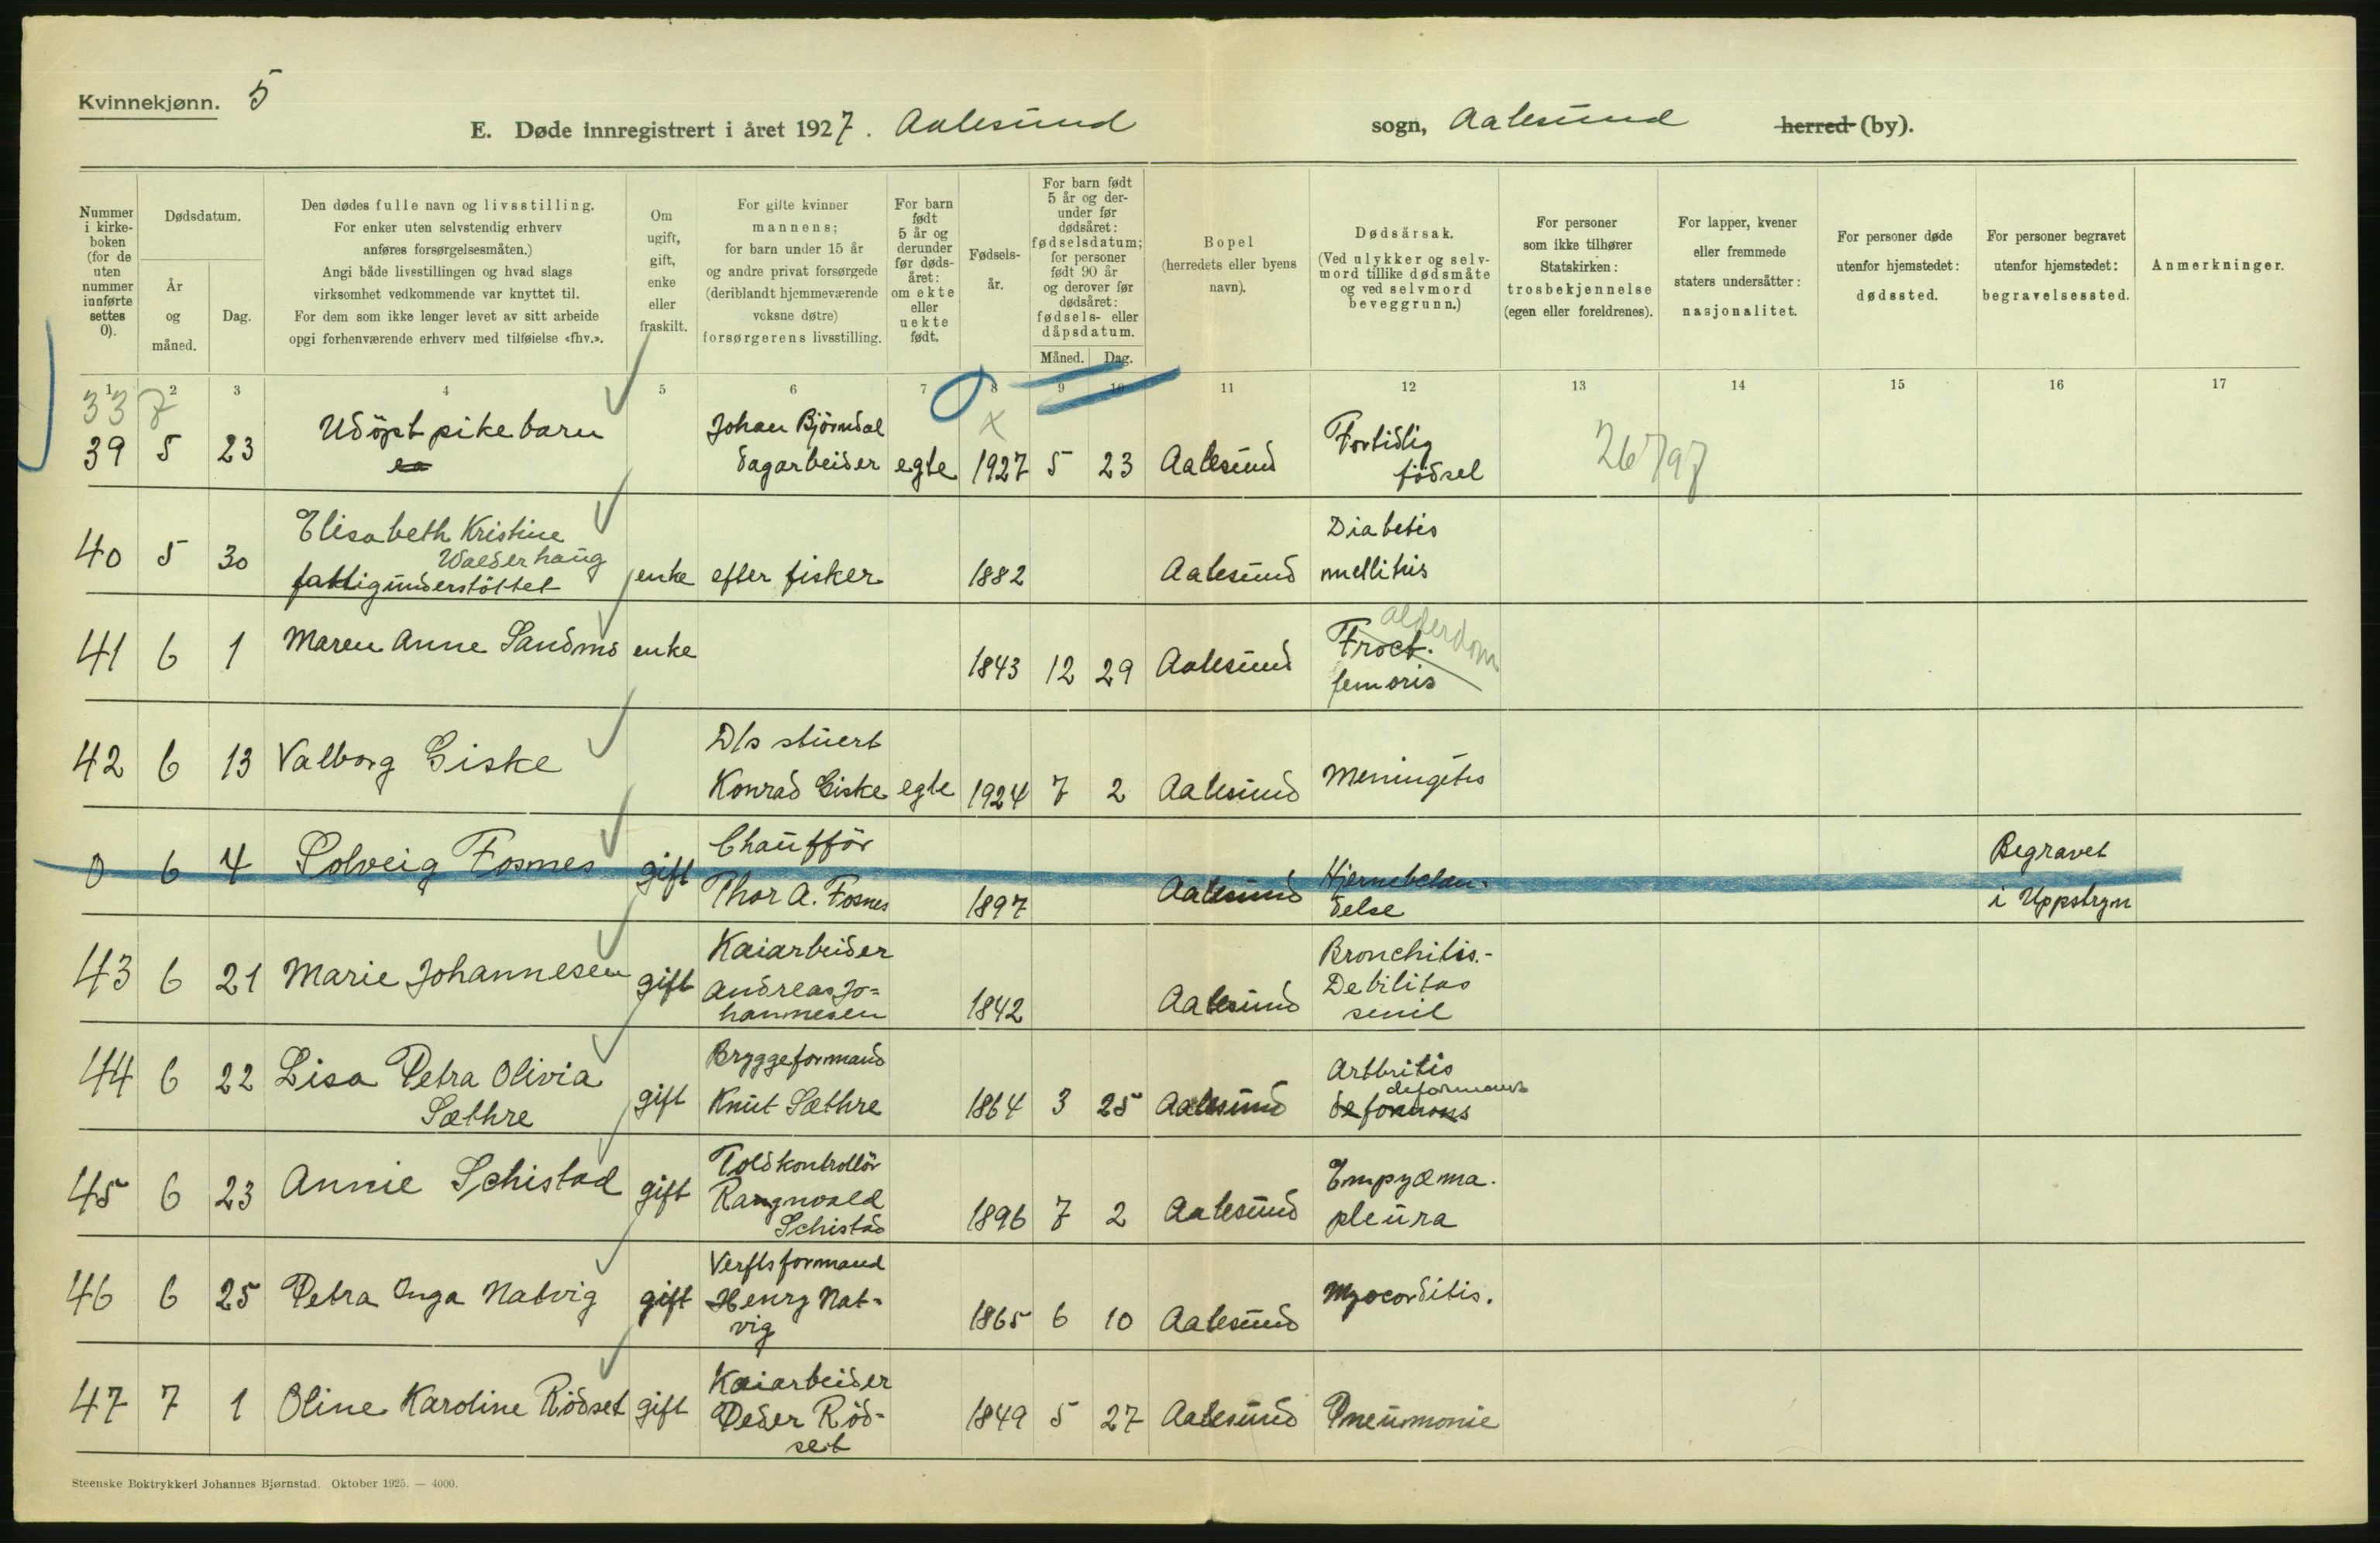 Kvinnekjønn. 5
E. Døde innregistrert i året 1927. Aalesund sogn, Aalesund herred (by).
Nummer i kirke-boken (for de uten nummer innførte settes 0).
Dødsdatum.
År og måned.
Dag.
Den dødes fulle navn og livsstilling.
For enker uten selvstendig erhverv
anføres forsørgelsesmåten.)
Angi både livsstillingen og hvad slags
virksomhet vedkommende var knyttet til.
For dem som ikke lenger levet av sitt arbeide
opgi forhenværende erhverv med tilføielse «fhv.».
Om ugift, gift, enke eller fraskilt.
For gifte kvinner
mannens;
for barn under 15 år
og andre privat forsørgede
(deriblandt hjemmeværende
voksne døtre)
forsørgerens livsstilling.
For barn født 5 år og derunder før døds-året: om ekte eller uekte født.
Fødsels-år.
For barn født 5 år og der-under før dødsåret: fødselsdatum; for personer født 90 år og derover før dødsåret: fødsels- eller dåpsdatum.
Måned. Dag.
Bopel
(herredets eller byens
navn).
Dødsårsak.
(Ved ulykker og selv-
mord tillike dødsmåte
og ved selvmord
beveggrunn.)
For personer
som ikke tilhører
Statskirken:
trosbekjennelse
(egen eller foreldrenes).
For lapper, kvener
eller fremmede
staters undersåtter:
nasjonalitet.
For personer døde
utenfor hjemstedet:
dødssted.
For personer begravet
utenfor hjemstedet:
begravelsessted.
Anmerkninger.
1 2 3 4 5 6 7 8 9 10 11 12 13 14 15 16 17
337
39 5 23 Udöpt pikebarn
Johan Björndal
dagarbeider egte x 1927 5 23 Aalesund Fortidlig
födsel
26/97
40 5 30 Elisabeth Kristine
Walderhaug
fattigunderstöttet enke efter fisker 1882 Aalesund Diabetis
mellitus
41 6 1 Maren Anne Sandms enke 1843 12 29 Aalesund Fract.
femoris
alderdom
42 6 13 Valborg Giske D/s stuert
Konrad Giske egte 1924 7 2 Aalesund Meningitis
0 6 4 Solveig Fosnes gift Chaufför
Thor A. Fosnes 1897 Aalesund Hjernebetæn-
delse Begravet
i Uppstryn
43 6 21 Marie Johannesen gift Kaiarbeider
Andreas Jo=
hannesen 1842 Aalesund Bronchitis.-
Debilitas
senil
44 6 22 Lisa Petra Olivia
Sæthre gift Bryggeformand
Knut Sæthre 1864 3 25 Aalesund Arthritis
deformans
deformans
45 6 23 Annie Schistad gift Toldkontrollör
Rangnvald
Schistad 1896 7 2 Aalesund Empyæma.
pleura
46 6 25 Petra Inga Natvig gift Verftsformand
Henry Nat=
vig 1865 6 10 Aalesund Myocorditis.
47 7 1 Oline Karoline Rödset gift Kaiarbeider
Peder Röd-
set 1849 5 27 Aalesund Pneumonie
Steenske Boktrykkeri Johannes Bjørnstad. Oktober 1925. — 4000.